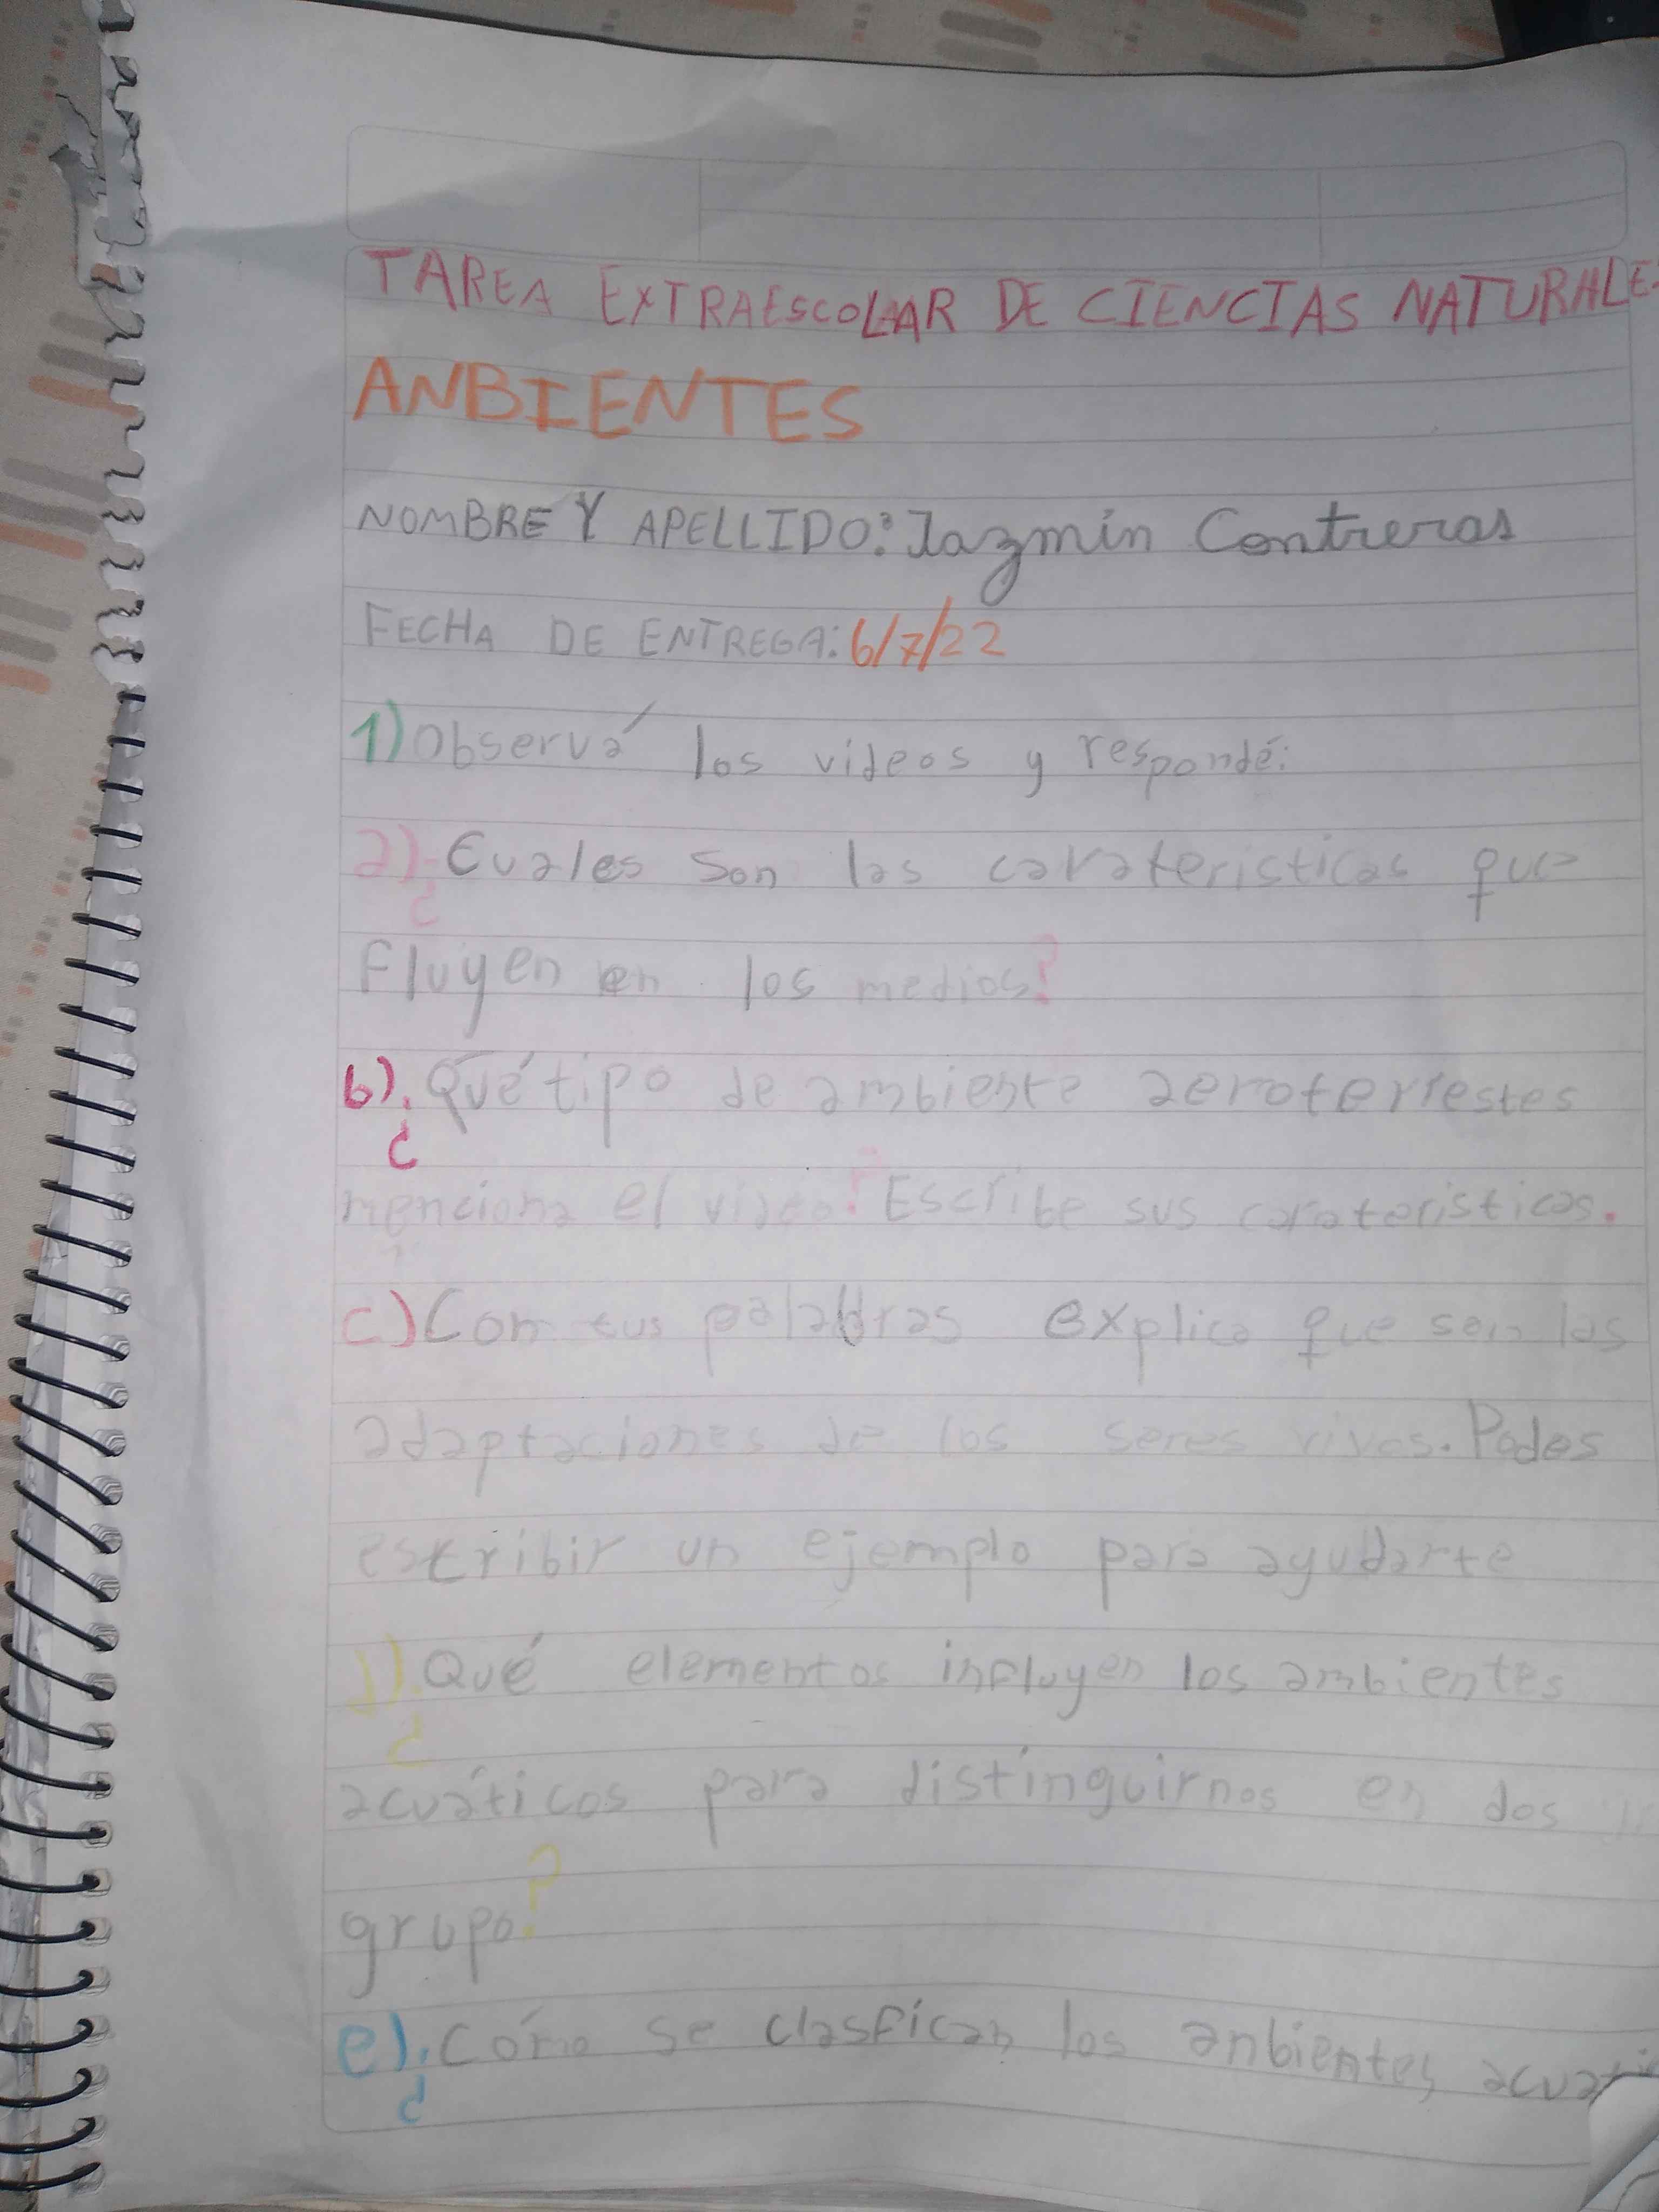 TAREA EXTRAESCOLAR DE CIENCIAS NATURALE
ANBIENTES
NOMBRE Y APELLIDO: Jazmín Contreras
FECHA DE ENTREGA: 6/7/22
1) Observá los videos y respondé:
a) ¿Cuales son las carateristicas que
fluyen en los medios?
b) ¿Qué tipo de ambiente aeroterrestes
menciona el video? Escribe sus carateristicas.
c) Con tus palabras explica que son las
adaptaciones de los seres vivos. Podes
escribir un ejemplo para ayudarte
d) ¿Qué elementos influyen los ambientes
acuáticos para distinguirnos en dos
grupo?
e) ¿Cómo se clasfican los anbientes acuati